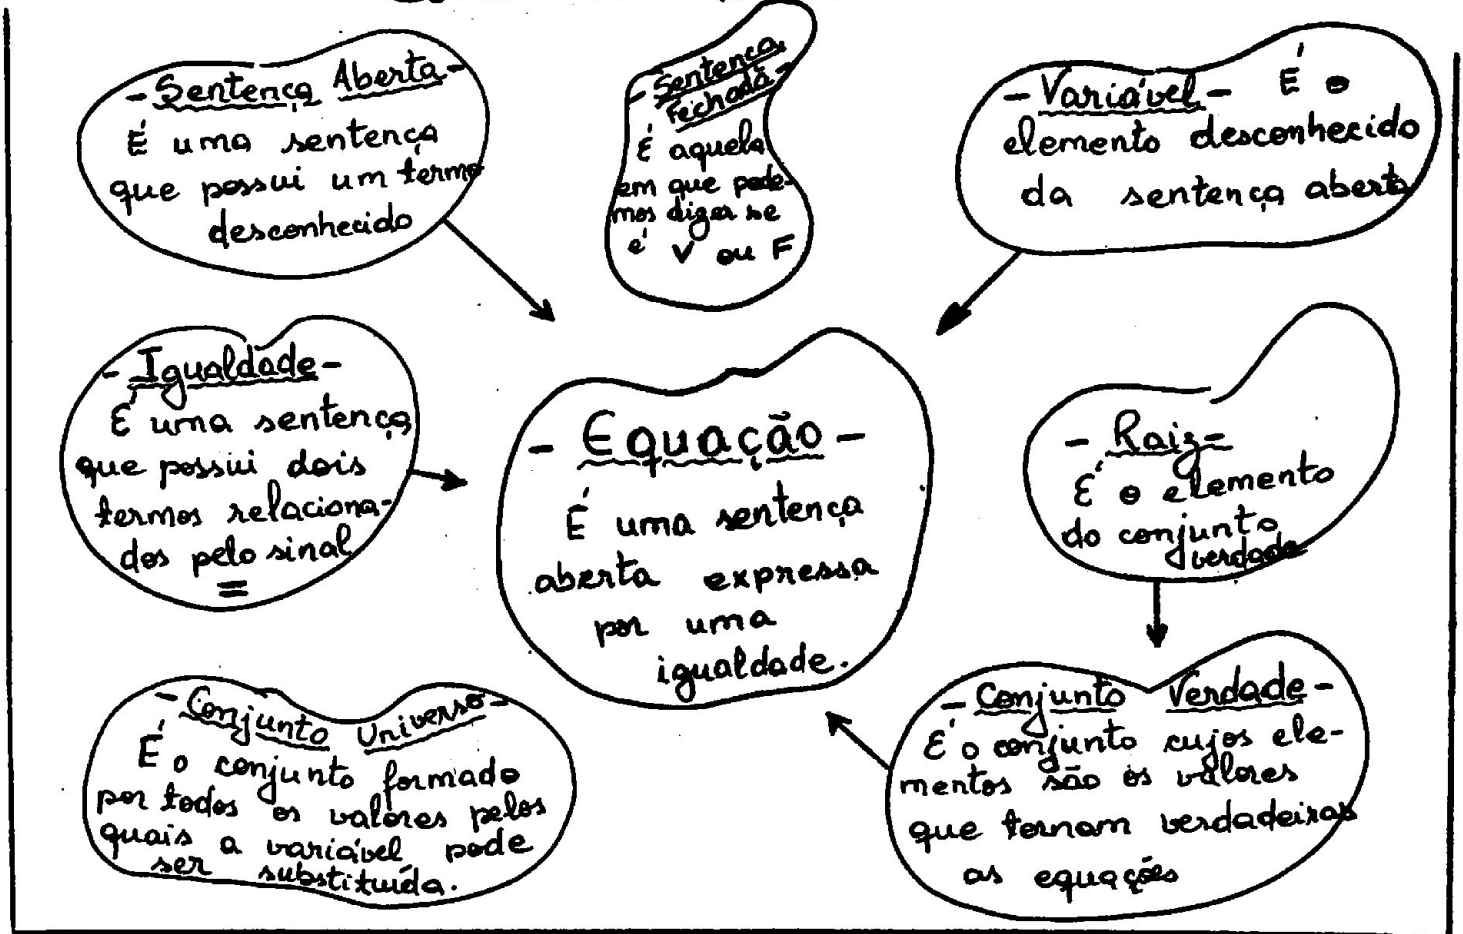 - Sentença Aberta -
É uma sentença
que possui um termo
desconhecido
- Sentença
Fechada -
É aquela
em que pode-
mos dizer se
é V ou F
- Variável - É o
elemento desconhecido
da sentença aberta
- Igualdade -
É uma sentença
que possui dois
termos relaciona-
dos pelo sinal
=
- Equação -
É uma sentença
aberta expressa
por uma
igualdade.
- Raiz -
É o elemento
do conjunto
verdade
- Conjunto Universo -
É o conjunto formado
por todos os valores pelos
quais a variável pode
ser substituída.
- Conjunto Verdade -
É o conjunto cujos ele-
mentos são os valores
que tornam verdadeiras
as equações